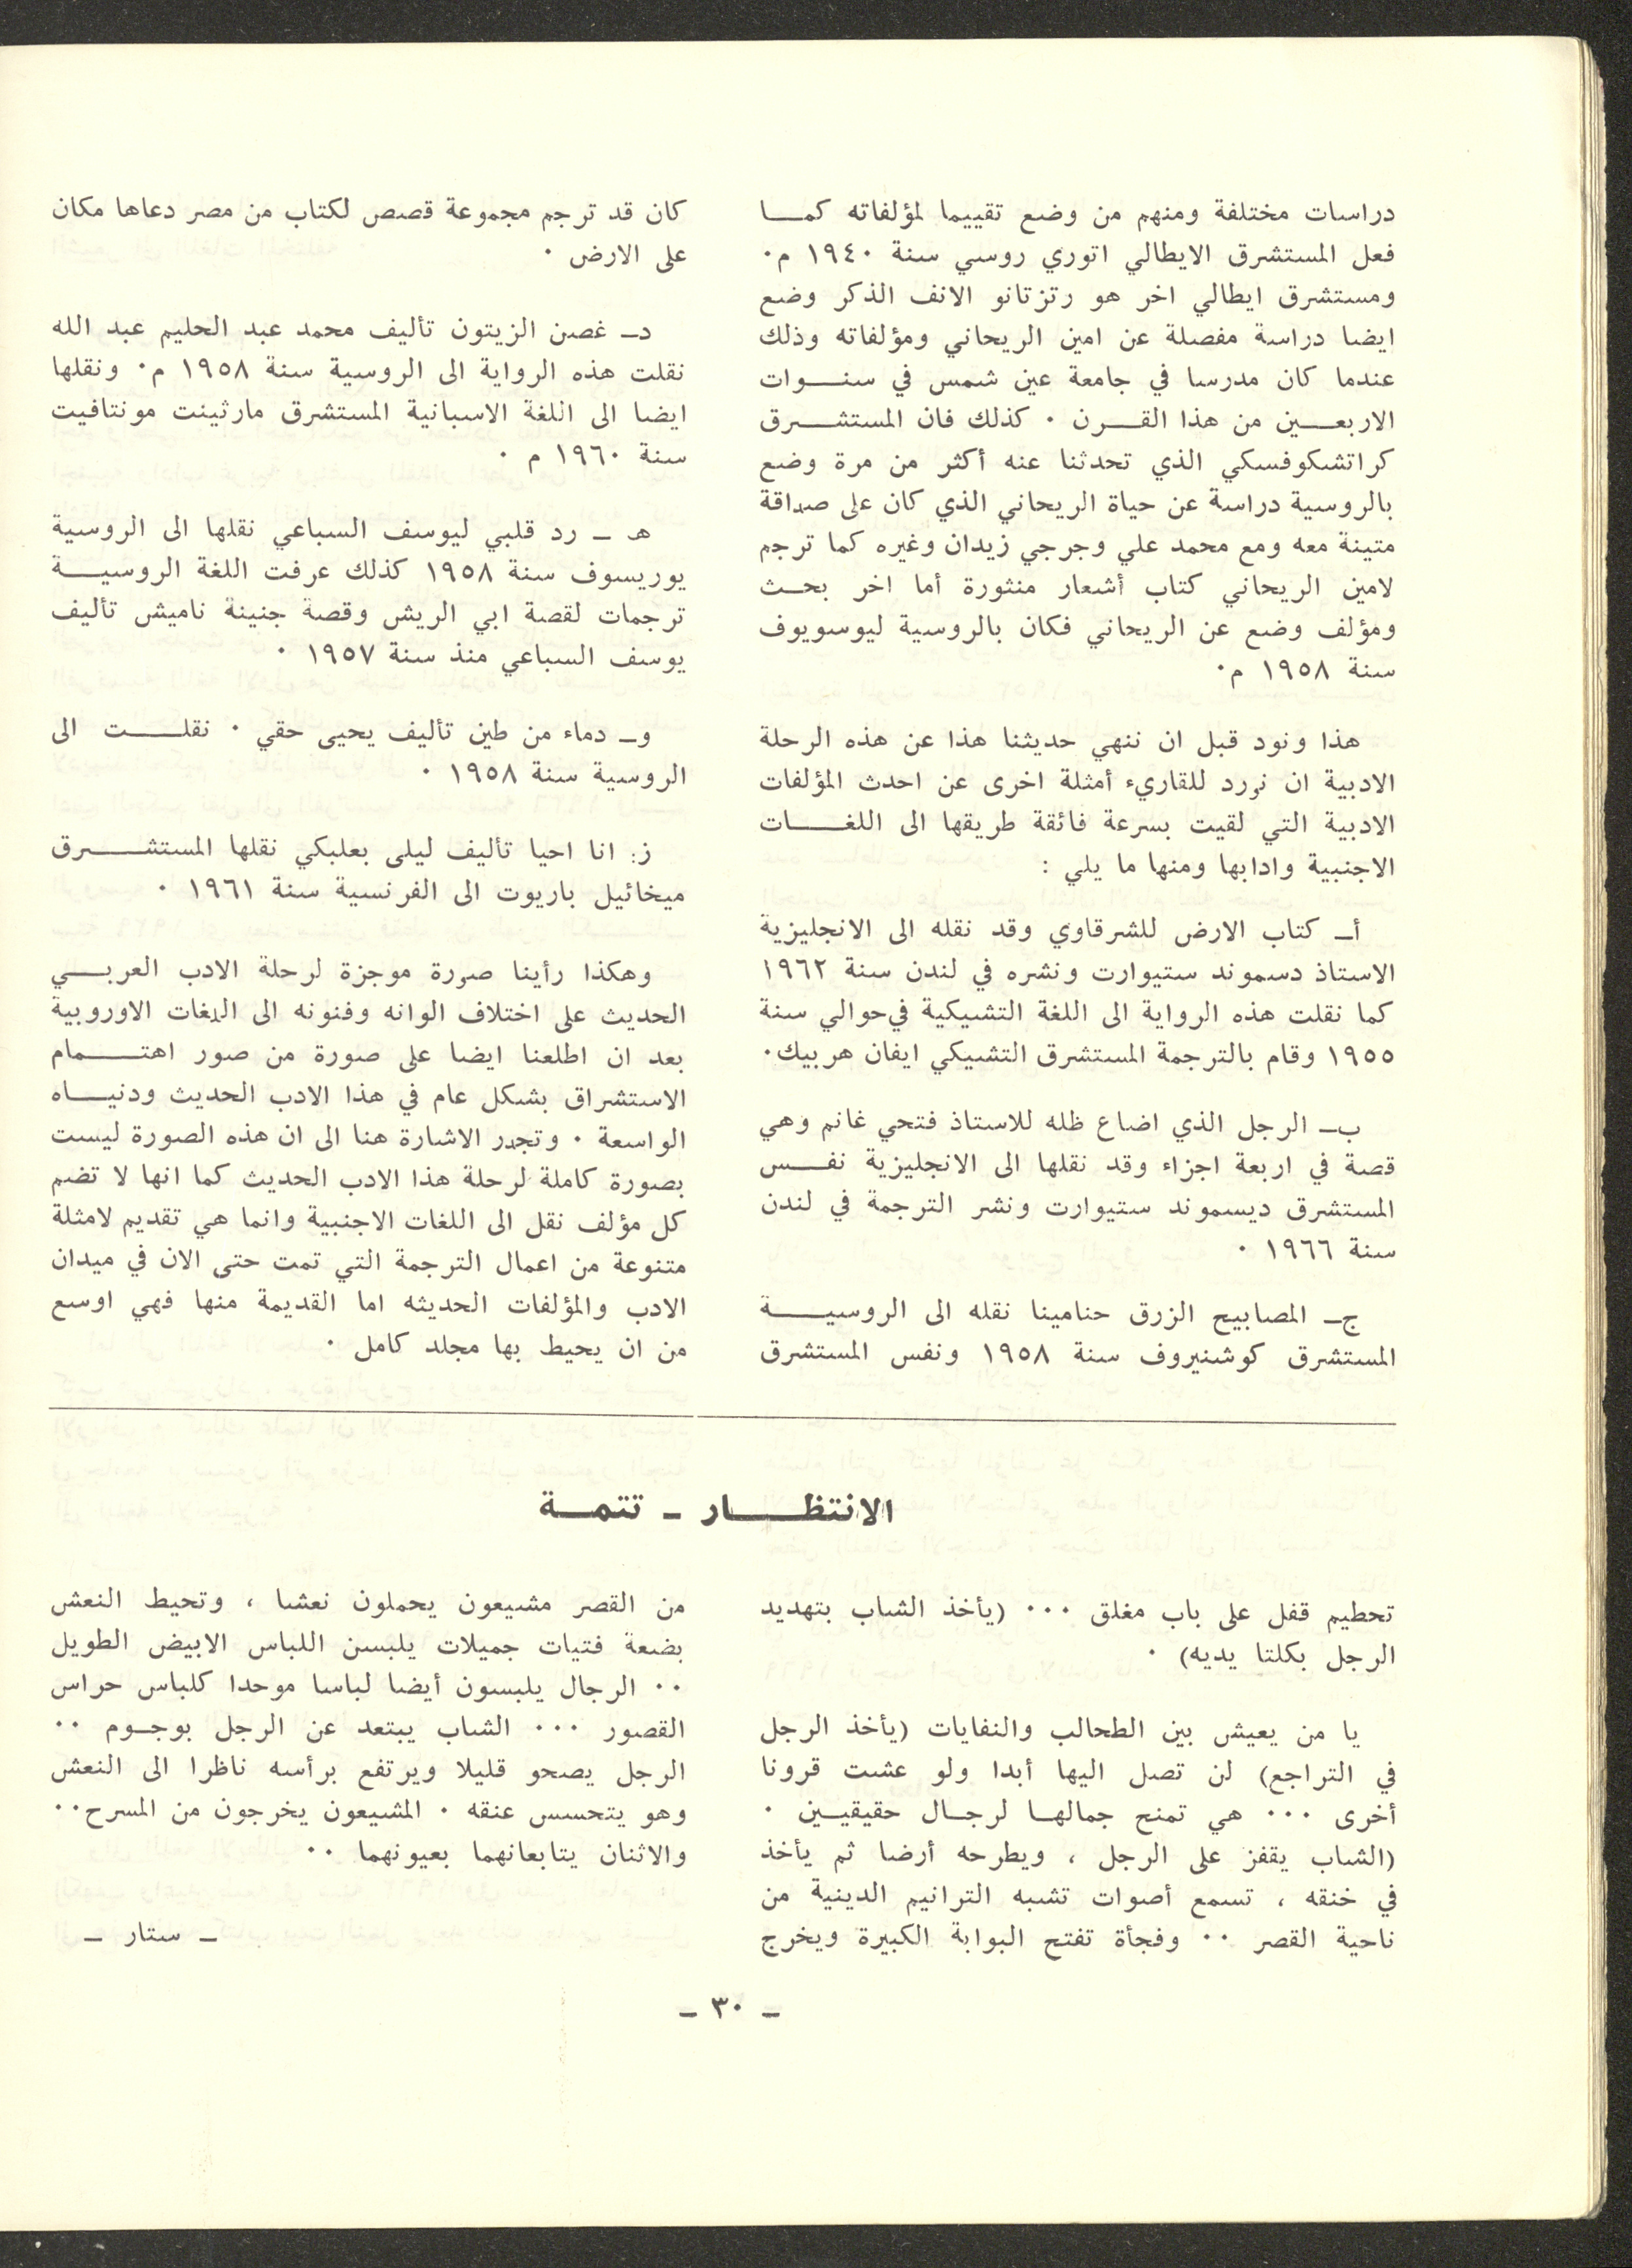 دراسات مختلفة ومنهم من وضع تقييما لمؤلفاته كمـــا
فعل المستشرق الايطالي اتوري روسي سنة ١٩٤٠ م٠
ومستشرق ايطالي اخر هو رتزتانو الانف الذكر وضع
ايضا دراسة مفصلة عن امين الريحاني ومؤلفاته وذلك
عندما كان مدرسا في جامعة عين شمس في سنـــوات
الاربعـــين من هذا القـــرن ٠ كذلك فان المستشـــرق
كراتشكوفسكي الذي تحدثنا عنه أكثر من مرة وضع
بالروسية دراسة عن حياة الريحاني الذي كان على صداقة
متينة معه ومع محمد علي وجرجي زيدان وغيره كما ترجم
لامين الريحاني كتاب أشعار منثورة أما اخر بحـــث
ومؤلف وضع عن الريحاني فكان بالروسية ليوسويوف
سنة ١٩٥٨ م٠
هذا ونود قبل ان ننهي حديثنا هذا عن هذه الرحلة
الادبية ان نورد للقاريء أمثلة اخرى عن احدث المؤلفات
الادبية التي لقيت بسرعة فائقة طريقها الى اللغـــات
الاجنبية وادابها ومنها ما يلي :
أـ كتاب الارض للشرقاوي وقد نقله الى الانجليزية
الاستاذ دسموند ستيوارت ونشره في لندن سنة ١٩٦٢
كما نقلت هذه الرواية الى اللغة التشيكية في حوالي سنة
١٩٥٥ وقام بالترجمة المستشرق التشيكي ايفان هربيك٠
بـ الرجل الذي اضاع ظله للاستاذ فتحي غانم وهي
قصة في اربعة اجزاء وقد نقلها الى الانجليزية نفـــس
المستشرق ديسموند ستيوارت ونشر الترجمة في لندن
سنة ١٩٦٦ ٠
جـ المصابيح الزرق حنامينا نقله الى الروسيـــة
المستشرق كوشنيروف سنة ١٩٥٨ ونفس المستشرق
كان قد ترجم مجموعة قصص لكتاب من مصر دعاها مكان
على الارض ٠
دـ غصن الزيتون تأليف محمد عبد الحليم عبد الله
نقلت هذه الرواية الى الروسية سنة ١٩٥٨ م٠ ونقلها
ايضا الى اللغة الاسبانية المستشرق مارثينت مونتافيت
سنة ١٩٦٠ م ٠
هـ ـ رد قلبي ليوسف السباعي نقلها الى الروسية
يوريسوف سنة ١٩٥٨ كذلك عرفت اللغة الروسيـــة
ترجمات لقصة ابي الريش وقصة جنينة ناميش تأليف
يوسف السباعي منذ سنة ١٩٥٧ ٠
وـ دماء من طين تأليف يحيى حقي ٠ نقلـــت الى
الروسية سنة ١٩٥٨ ٠
ز: انا احيا تأليف ليلى بعلبكي نقلها المستشـــرق
ميخائيل باربوت الى الفرنسية سنة ١٩٦١ ٠
وهكذا رأينا صورة موجزة لرحلة الادب العربـــي
الحديث على اختلاف الوانه وفنونه الى اللغات الاوروبية
بعد ان اطلعنا ايضا على صورة من صور اهتـــمام
الاستشراق بشكل عام في هذا الادب الحديث ودنيـــاه
الواسعة ٠ وتجدر الاشارة هنا الى ان هذه الصورة ليست
بصورة كاملة لرحلة هذا الادب الحديث كما انها لا تضم
كل مؤلف نقل الى اللغات الاجنبية وانما هي تقديم لامثلة
متنوعة من اعمال الترجمة التي تمت حتى الان في ميدان
الادب والمؤلفات الحديثه اما القديمة منها فهي اوسع
من ان يحيط بها مجلد كامل ٠
الانتظـــار ـ تتمـــة
تحطيم قفل على باب مغلق ٠٠٠ (يأخذ الشاب بتهديد
الرجل بكلتا يديه) ٠
يا من يعيش بين الطحالب والنفايات (يأخذ الرجل
في التراجع) لن تصل اليها أبدا ولو عشت قرونا
أخرى ٠٠٠ هي تمنح جمالهـا لرجـال حقيقيـين ٠
(الشاب يقفز على الرجل ، ويطرحه أرضا ثم يأخذ
في خنقه ، تسمع أصوات تشبه الترانيم الدينية من
ناحية القصر ٠٠ وفجأة تفتح البوابة الكبيرة ويخرج
من القصر مشيعون يحملون نعشا ، وتحيط النعش
بضعة فتيات جميلات يلبسن اللباس الابيض الطويل
٠٠ الرجال يلبسون أيضا لباسا موحدا كلباس حراس
القصور ٠٠٠ الشاب يبتعد عن الرجل بوجـوم ٠٠
الرجل يصحو قليلا ويرتفع برأسه ناظرا الى النعش
وهو يتحسس عنقه ٠ المشيعون يخرجون من المسرح٠٠
والاثنان يتابعانهما بعيونهما ٠٠
ـ ستار ـ
ـ ٣٠ ـ